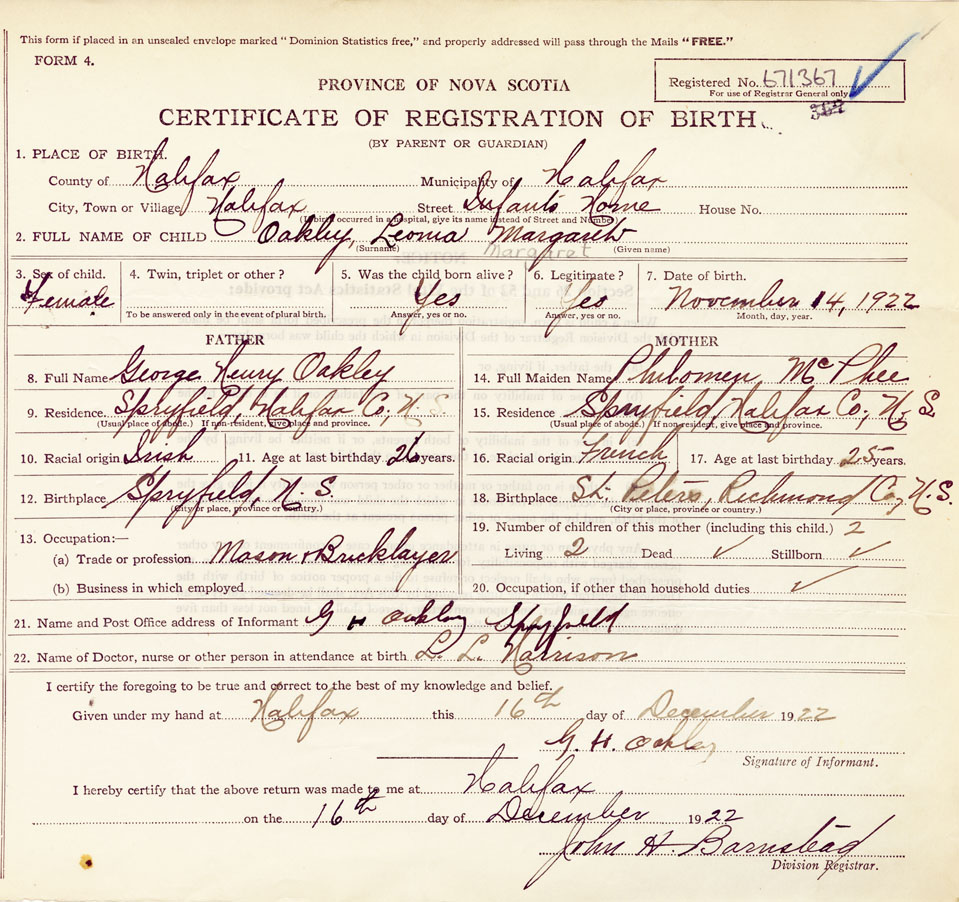 This form if placed in an unsealed envelope marked "Dominion Statistics free," and properly addressed will pass through the Mails "FREE."
FORM 4.
Registered No. 671367
For use of Registrar General only
PROVINCE OF NOVA SCOTIA
CERTIFICATE OF REGISTRATION OF BIRTH
(BY PARENT OR GUARDIAN)
1. PLACE OF BIRTH.
County of Halifax Municipality of Halifax
City, Town or Village Halifax Street Infants Home House No.
(If birth occurred in a hospital, give its name instead of Street and Number)
2. FULL NAME OF CHILD Oakley, Leoma Margaret
(Surname) Margaret (Given name)
3. Sex of child. 4. Twin, triplet or other? 5. Was the child born alive? 6. Legitimate? 7. Date of birth.
Female Yes Yes November 14, 1922
To be answered only in the event of plural birth. Answer, yes or no. Answer, yes or no. Month, day, year.
FATHER
8. Full Name George Henry Oakley
9. Residence Spryfield, Halifax Co, N S
(Usual place of abode.) If non-resident, give place and province.
10. Racial origin Irish 11. Age at last birthday 26 years.
12. Birthplace Spryfield, N. S.
(City or place, province or country.)
13. Occupation:—
(a) Trade or profession Mason & Bricklayer
(b) Business in which employed
MOTHER
14. Full Maiden Name Philomen McPhee
15. Residence Spryfield, Halifax Co, N. S.
(Usual place of abode.) If non-resident, give place and province.
16. Racial origin French 17. Age at last birthday 25 years.
18. Birthplace St. Peters, Richmond Co, N. S.
(City or place, province or country.)
19. Number of children of this mother (including this child.) 2
Living 2 Dead ✓ Stillborn ✓
20. Occupation, if other than household duties ✓
21. Name and Post Office address of Informant G H Oakley Spryfield
22. Name of Doctor, nurse or other person in attendance at birth L. L. Harrison
I certify the foregoing to be true and correct to the best of my knowledge and belief.
Given under my hand at Halifax this 16th day of December 1922
G. H. Oakley
Signature of Informant.
I hereby certify that the above return was made to me at Halifax
on the 16th day of December 1922
John H. Barnstead
Division Registrar.